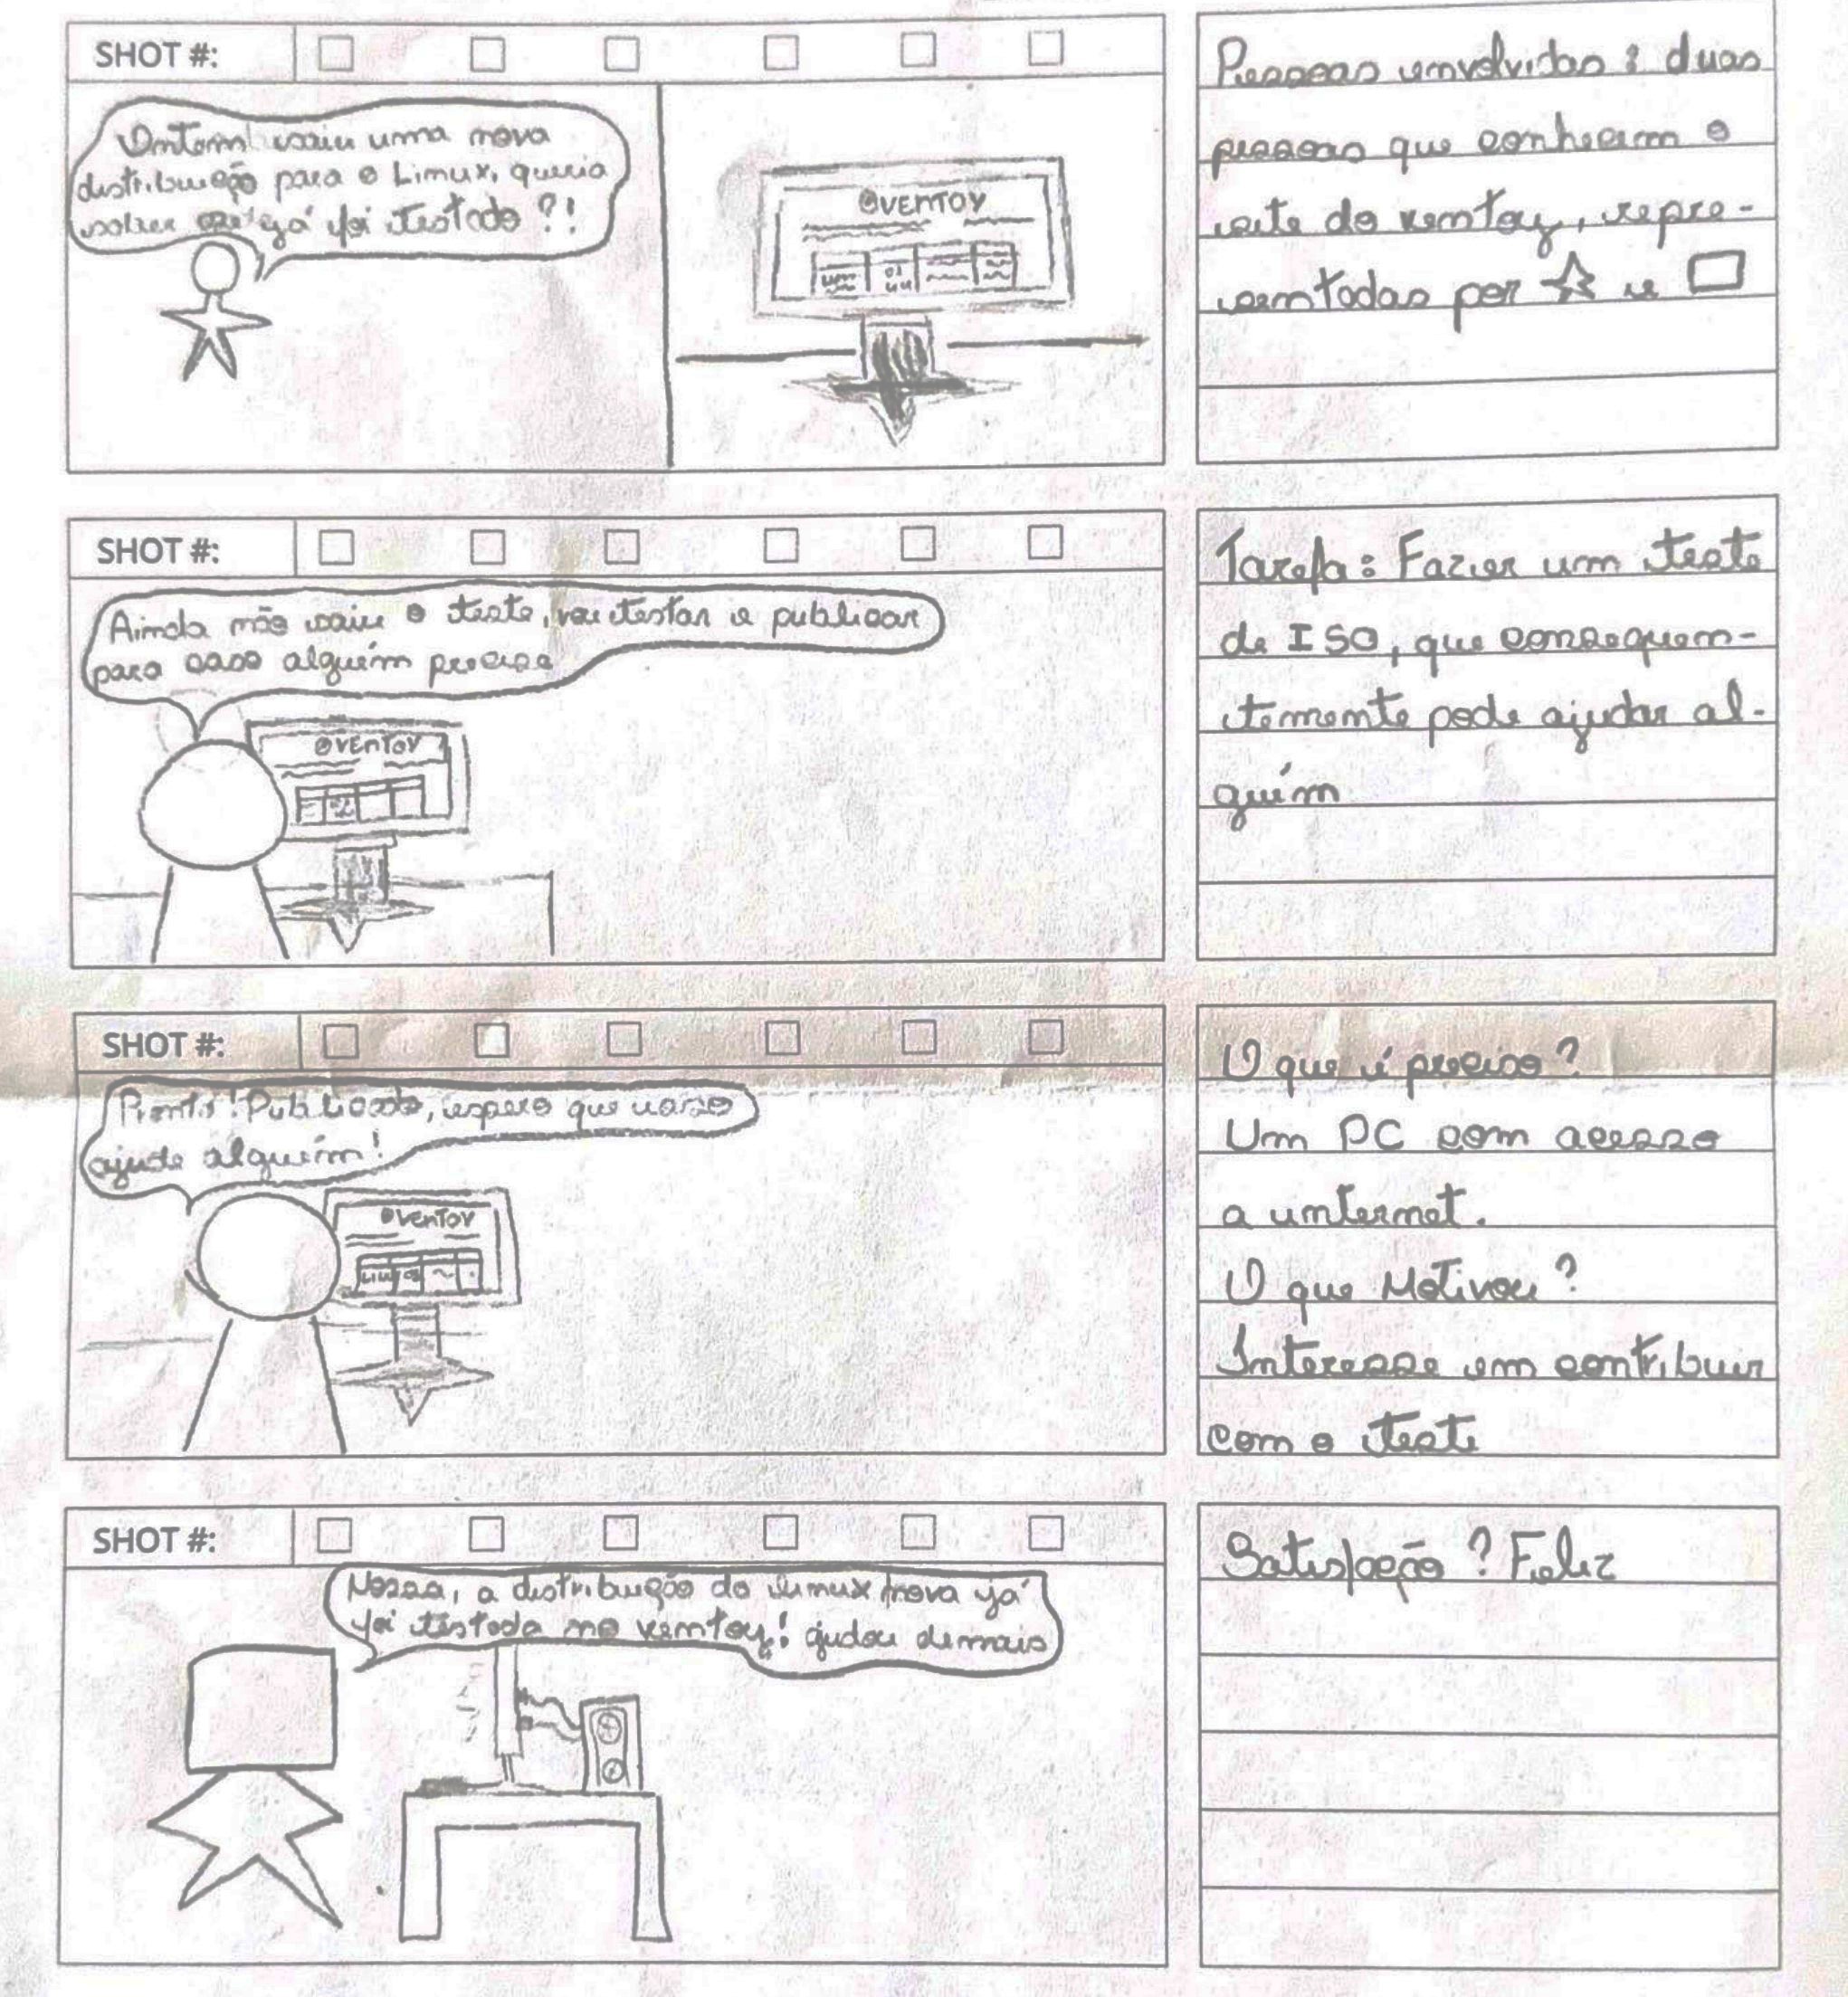 SHOT #:
Ontem saiu uma nova
distribuição para o Linux, queria
saber se já foi testado ?!
VENTOY
Pessoas envolvidas : duas
pessoas que conhecem o
site do ventoy, repre-
sentadas por e
SHOT #:
Ainda não saiu o teste, vou testar e publicar
para caso alguém precise
VENTOY
Tarefa : Fazer um teste
de ISO, que consequen-
temente pode ajudar al-
guém
SHOT #:
Pronto! Publicado, espero que
ajude alguém!
VENTOY
O que é preciso ?
Um PC com acesso
a internet.
O que Motivou ?
Interesse em contribuir
com o teste
SHOT #:
Nossa, a distribuição do linux nova já
foi testada no ventoy! ajudou demais
Satisfação ? Feliz